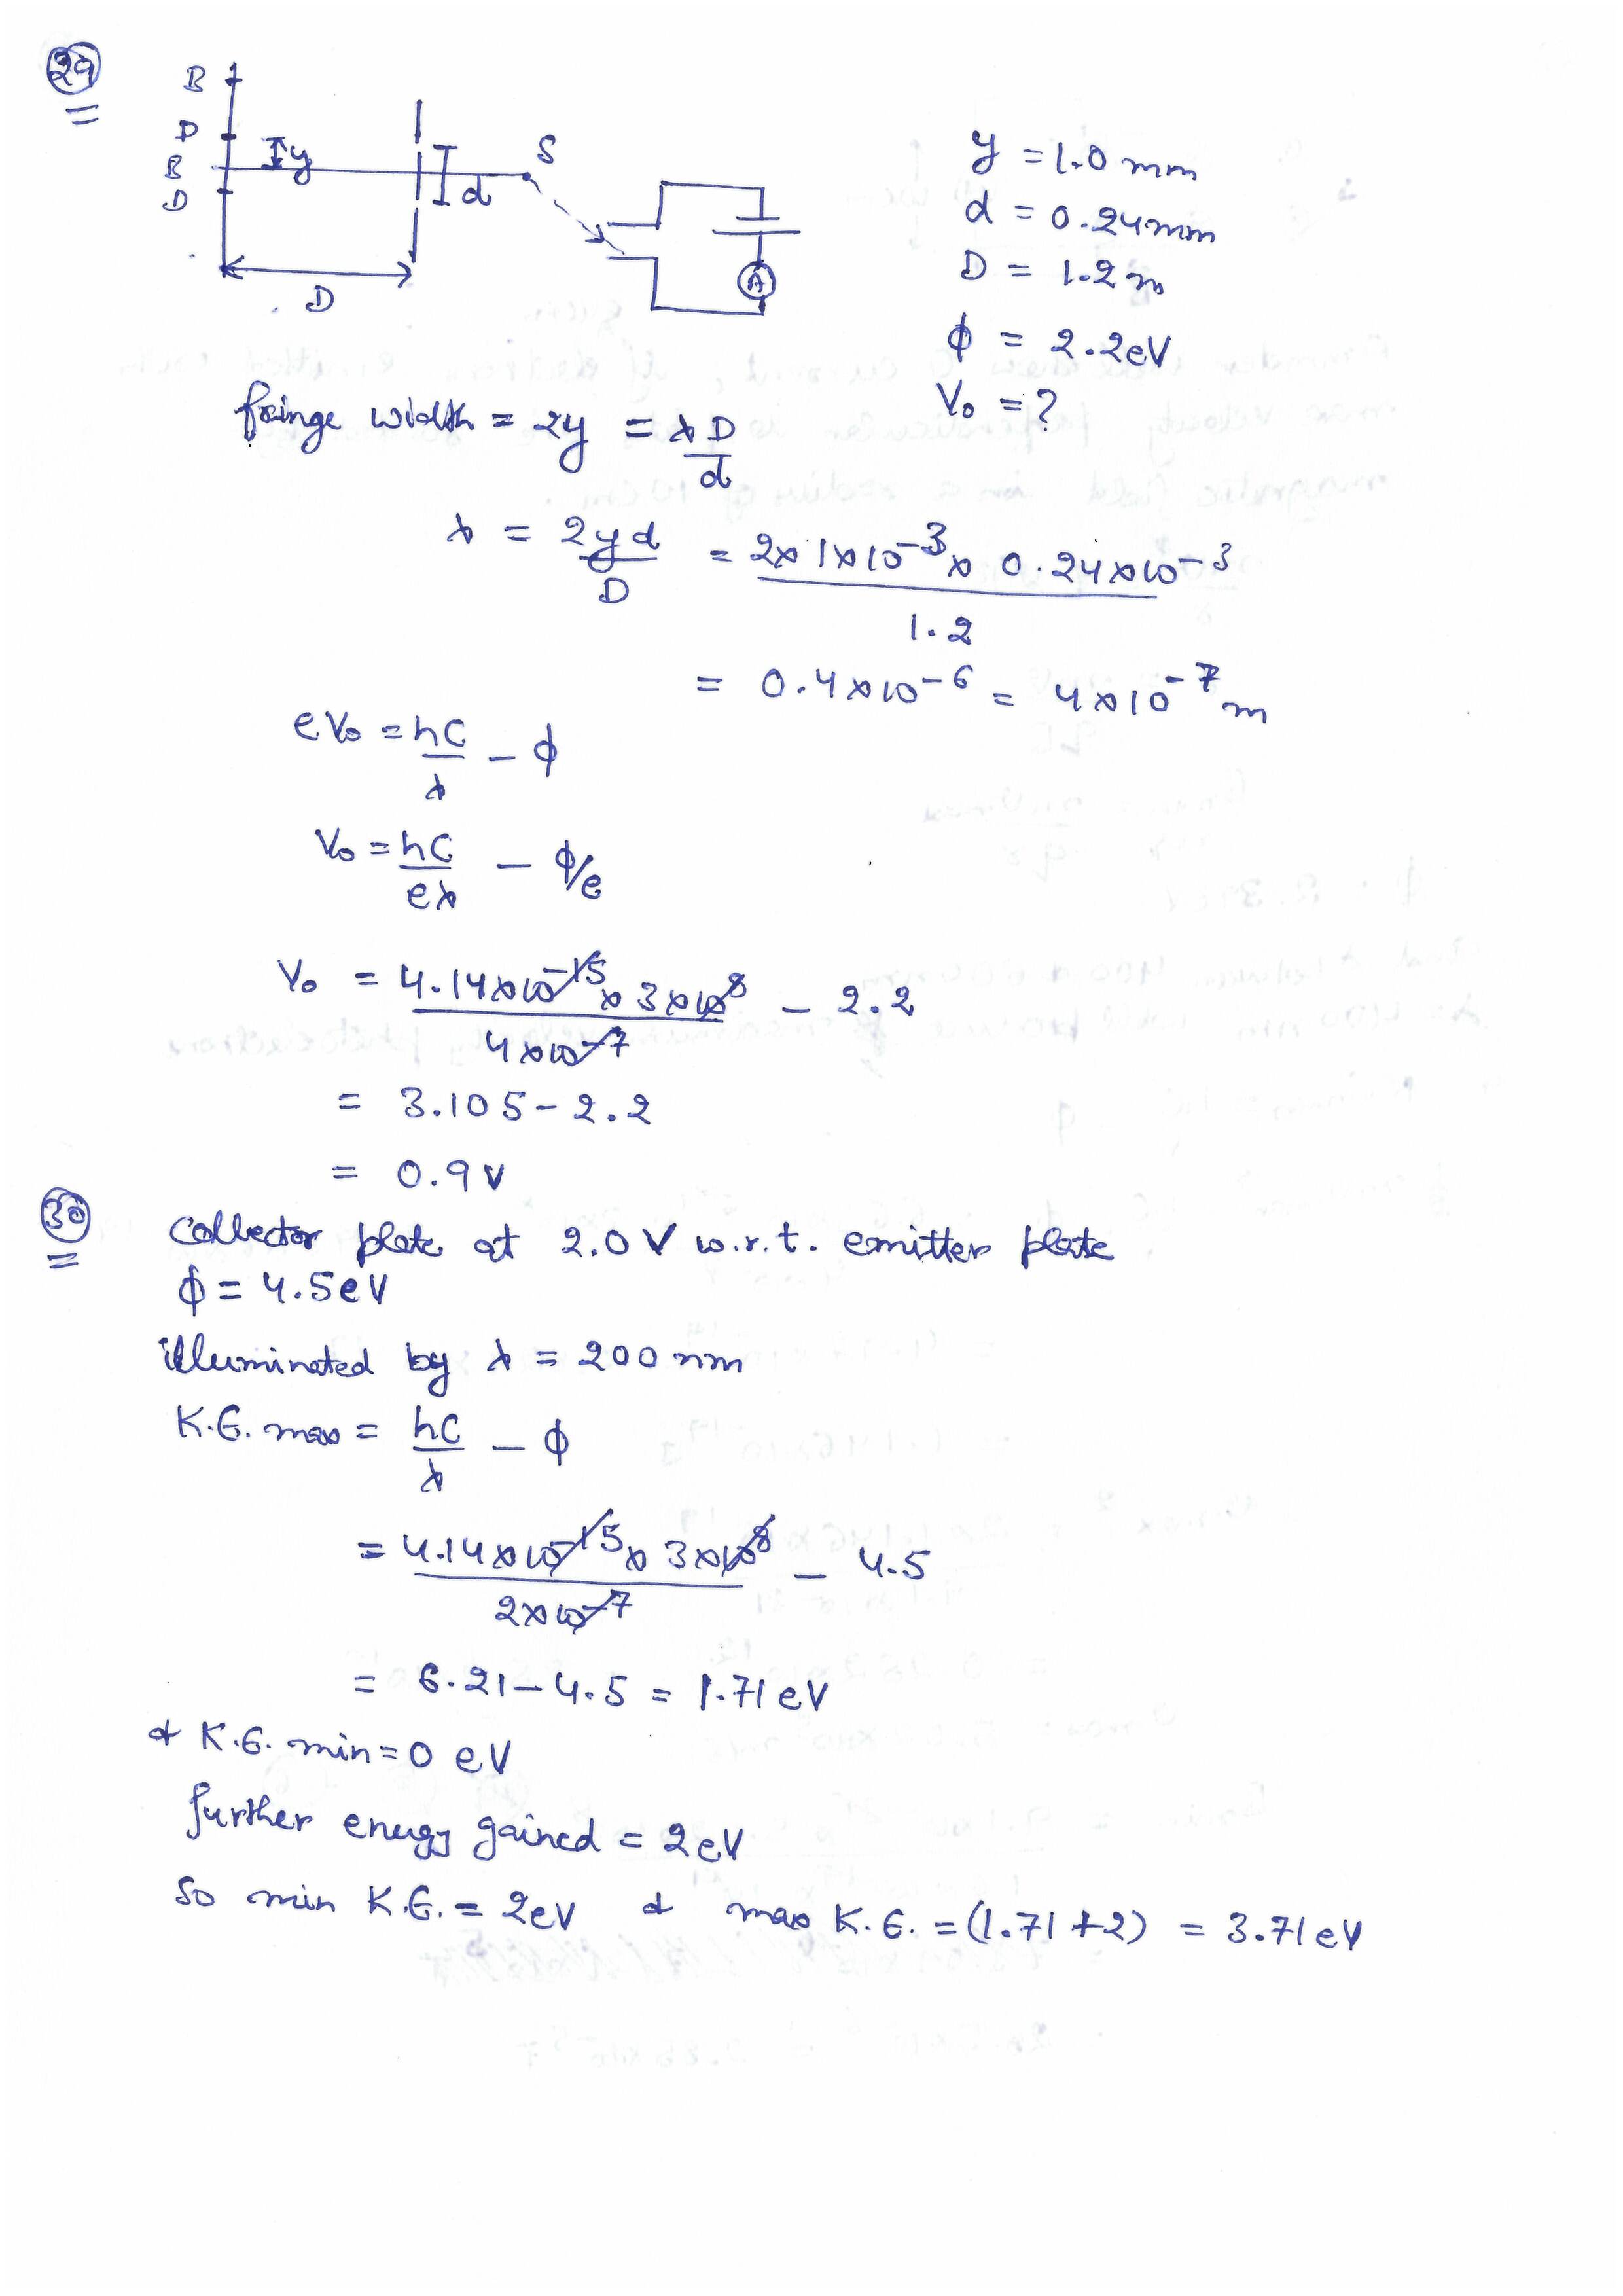 29
B
D
B
D
y
d
S
D
A
y = 1.0 mm
d = 0.24mm
D = 1.2 m
ϕ = 2.2eV
V₀ = ?
fringe width = 2y = λD/d
λ = 2yd/D = 2×1×10⁻³ × 0.24×10⁻³/1.2
= 0.4×10⁻⁶ = 4×10⁻⁷ m
eV₀ = hC/λ − ϕ
V₀ = hC/eλ − ϕ/e
V₀ = 4.14×10⁻¹⁵ × 3×10⁸/4×10⁻⁷ − 2.2
= 3.105 − 2.2
= 0.9 V
30
Collector plate at 2.0 V w.r.t. emitter plate
ϕ = 4.5eV
illuminated by λ = 200 nm
K.E. max = hC/λ − ϕ
= 4.14×10⁻¹⁵ × 3×10⁸/2×10⁻⁷ − 4.5
= 6.21 − 4.5 = 1.71 eV
& K.E. min = 0 eV
further energy gained = 2eV
So min K.E. = 2eV & max K.E. = (1.71 + 2) = 3.71 eV